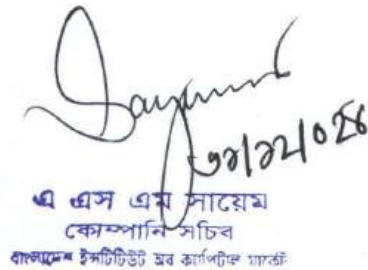 Sayem
৩১/১২/০২৪
এ এস এম সায়েম
কোম্পানি সচিব
বাংলাদেশ ইনস্টিটিউট অব ক্যাপিটাল মার্কেট